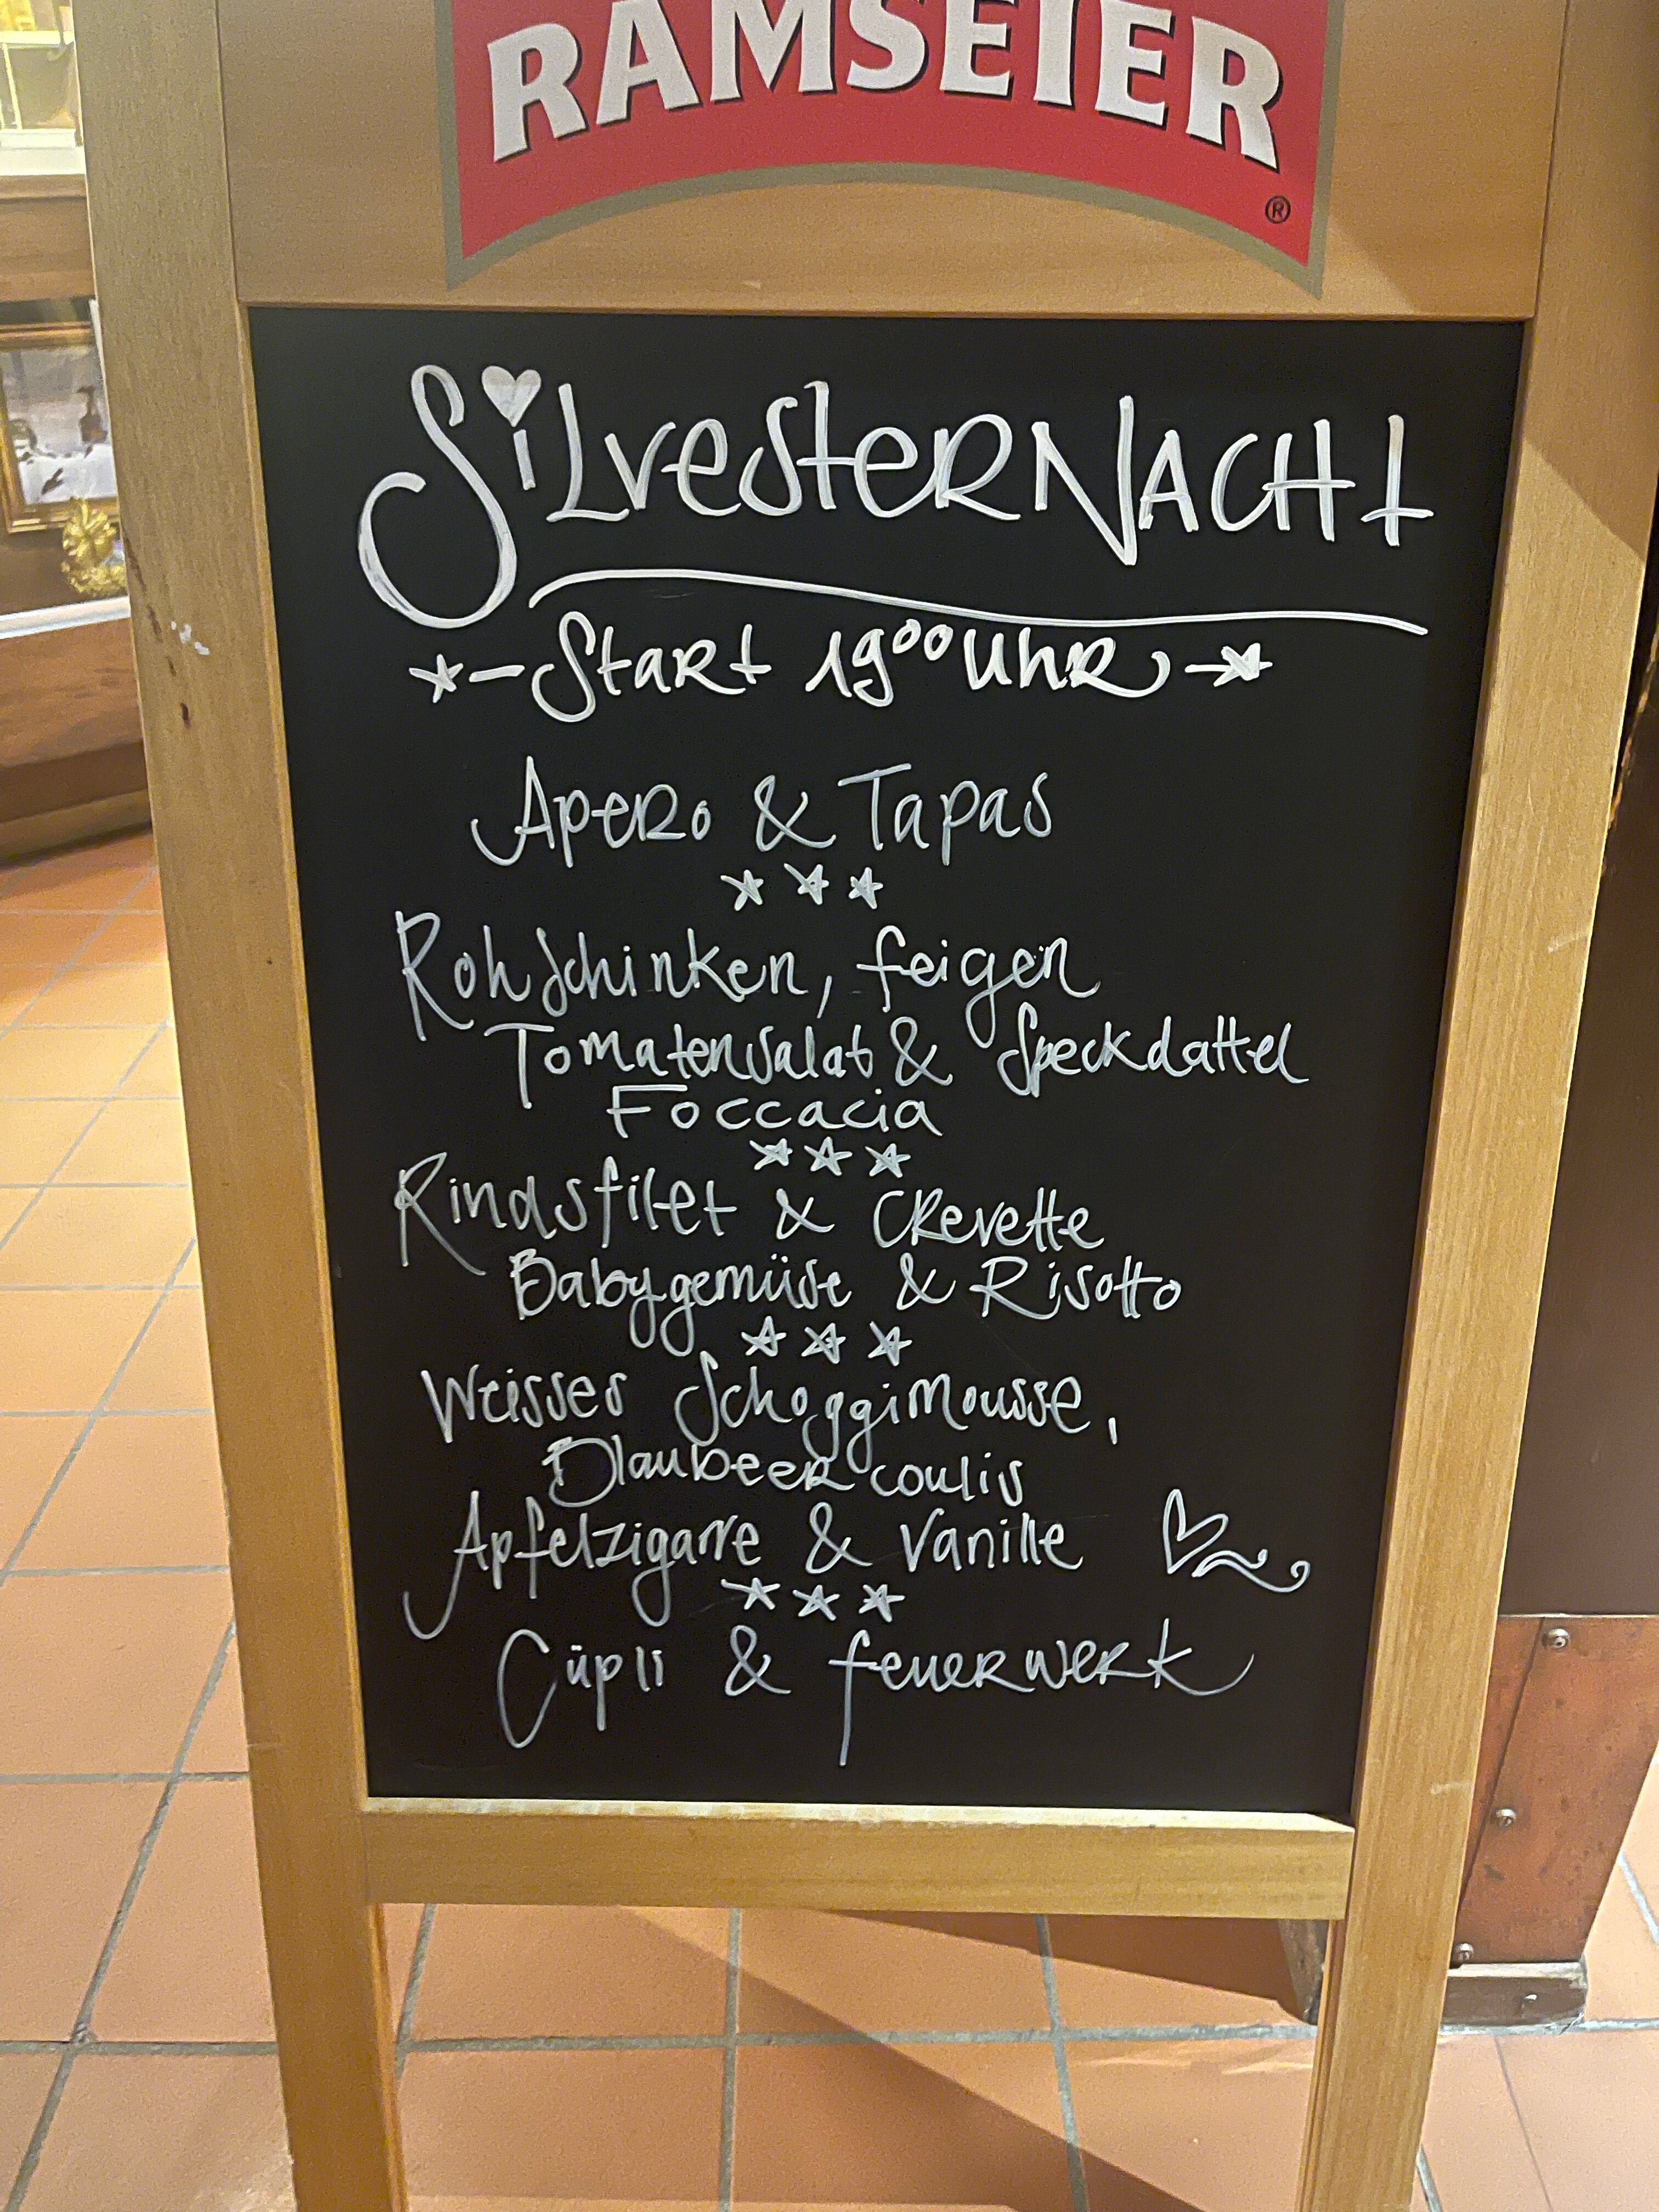 RAMSEIER
®
SilvesterNacht
Start 19⁰⁰ Uhr
Apero & Tapas
Rohschinken, feigen
Tomatensalat & Speckdattel
Foccacia
Rindsfilet & Crevette
Babygemüse & Risotto
Weisses Schoggimousse,
Blaubeer coulis
Apfelzigarre & Vanille
Cüpli & feuerwerk